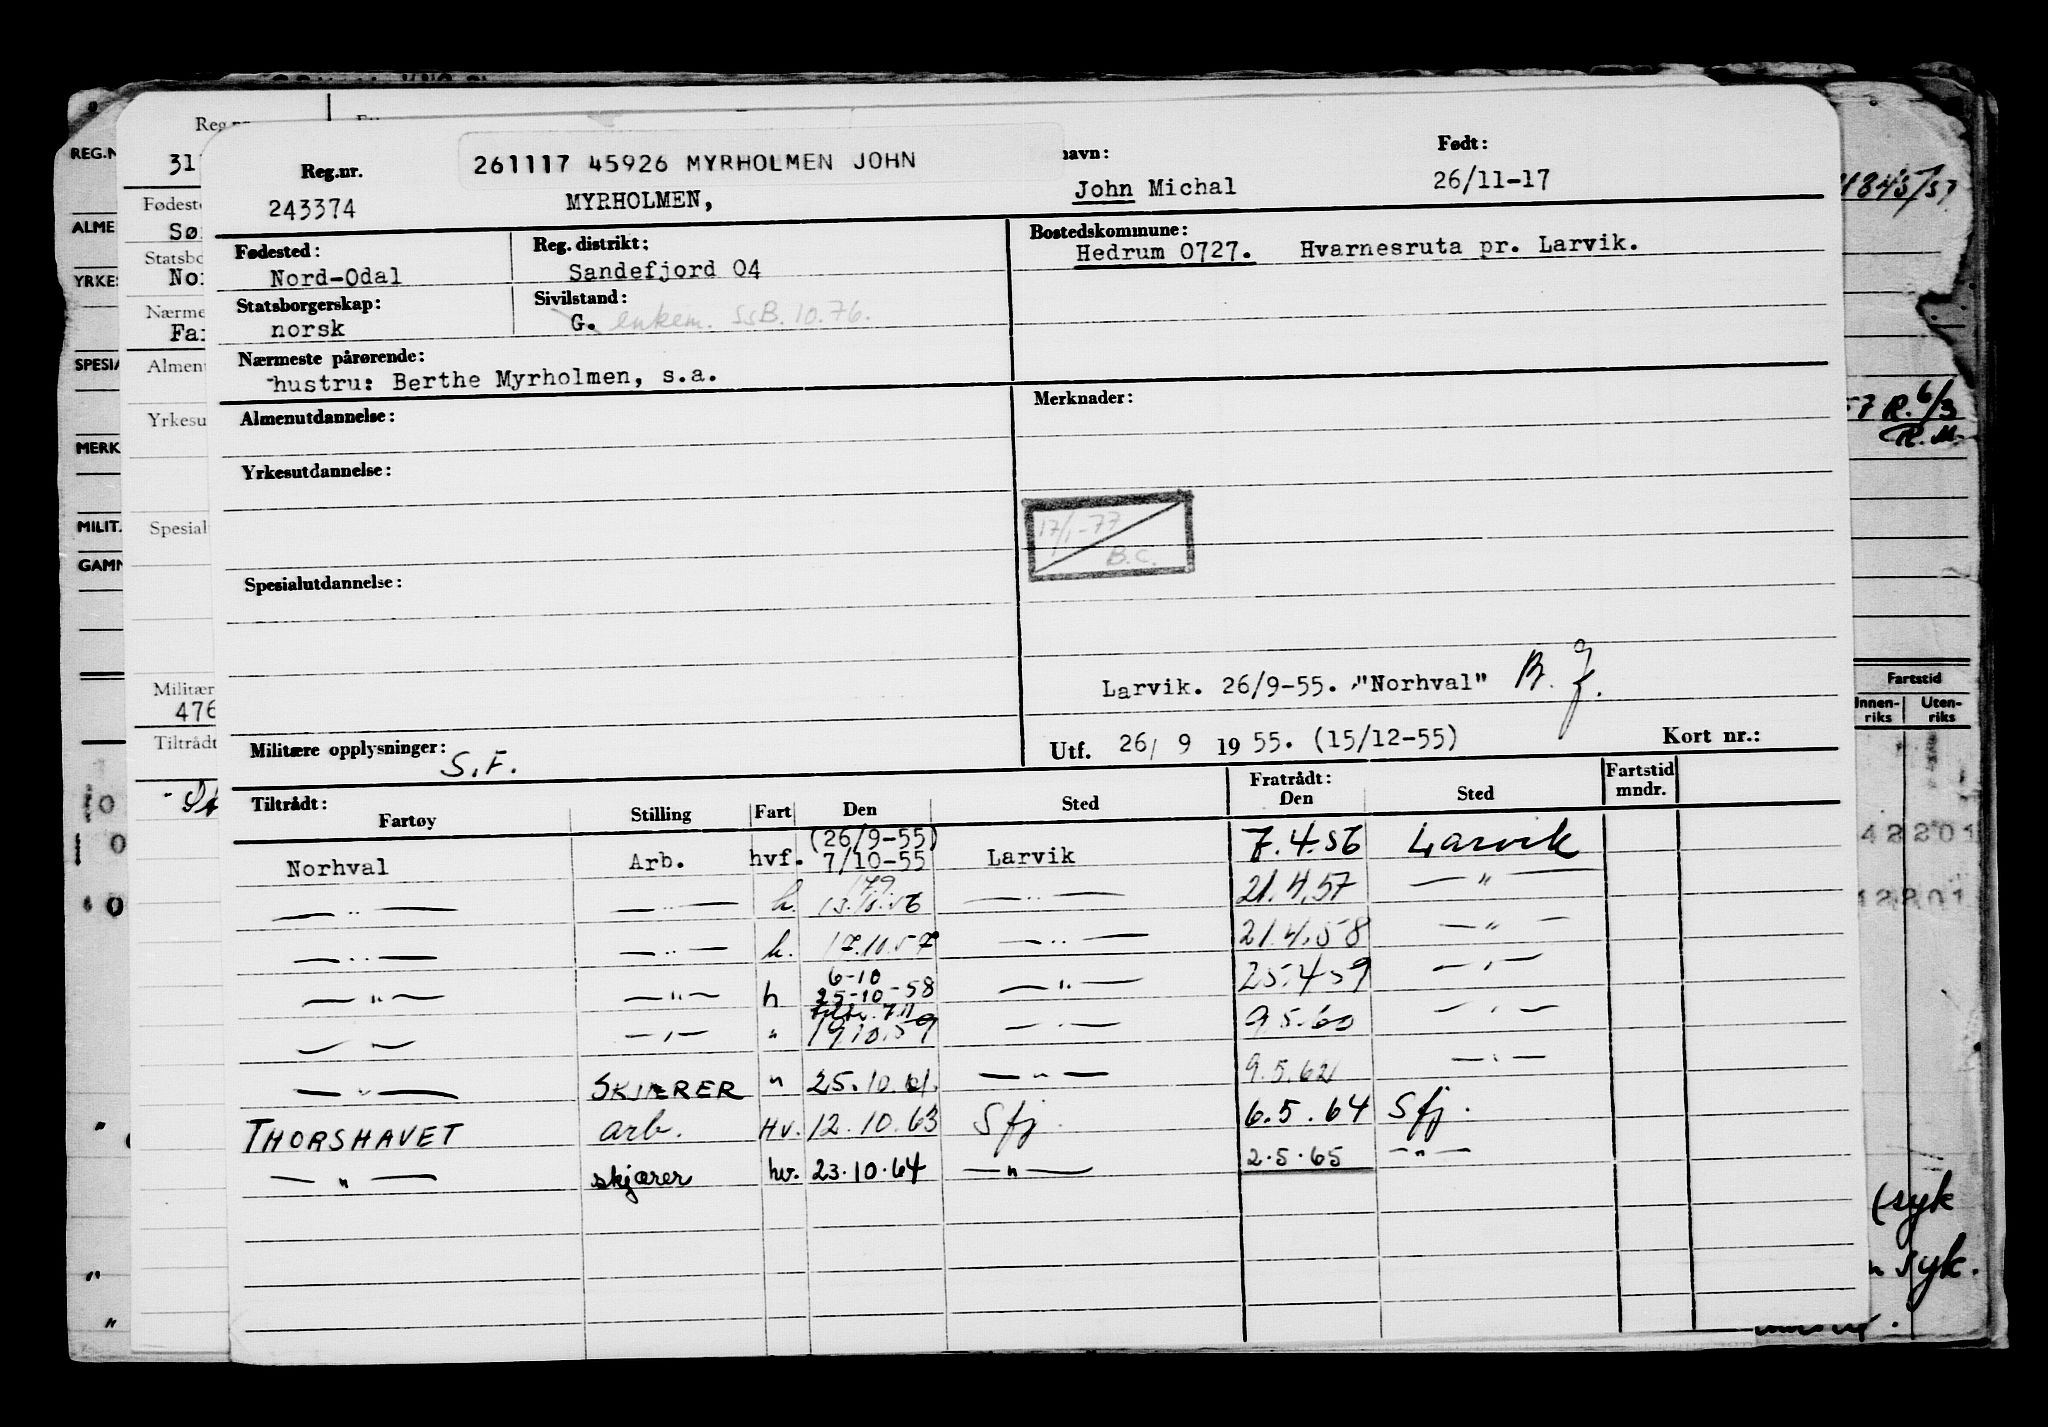 Reg.nr.
261117 45926 MYRHOLMEN JOHN
navn:
Født:
243374
MYRHOLMEN,
John Michal
26/11-17
Fødested:
Nord-Odal
Reg. distrikt:
Sandefjord 04
Bostedskommune:
Hedrum 0727. Hvarnesruta pr. Larvik.
Statsborgerskap:
norsk
Sivilstand:
G. enkem. SSB.10.76.
Nærmeste pårørende:
hustru: Berthe Myrholmen, s.a.
Almenutdannelse:
Merknader:
Yrkesutdannelse:
17/1-77
B.C.
Spesialutdannelse:
Larvik. 26/9-55. "Norhval" B. J.
Militære opplysninger: S.F.
Utf. 26/ 9 1955. (15/12-55) Kort nr.:
Tiltrådt:
Fartøy Stilling Fart Den Sted
Fratrådt:
Den Sted
Fartstid
mndr.
(26/9-55)
Norhval Arb. hvf. 7/10-55 Larvik 7.4.56 Larvik
— " — — " — h. — " — 21.4.57 — " —
— " — — " — h. 17.10.57 — " — 21.4.58 — " —
6-10
— " — — " — h 25-10-58 — " — 25.4.59 — " —
— — — " — " 19.10.59 — " — 9.5.60 — " —
— " — SKJÆRER " 25.10.61. — " — 9.5.62 — " —
THORSHAVET arb. Hv. 12.10.63 Sfj. 6.5.64 Sfj.
— " — skjærer hv. 23.10.64 — " — 2.5.65 — " —
Reg.nr
REG.N
31
Fødeste
ALME
Sø
Statsbo
YRKES
No
Nærme
Fa
SPESIA
Almen
Yrkesu
MERK
MILIT.
Spesial
GAMN
Militær
476
Tiltrådt
57 R. 6/3
R. M.
Fartstid
Innen-
riks
Uten-
riks
42201
12201
(syk
syk.